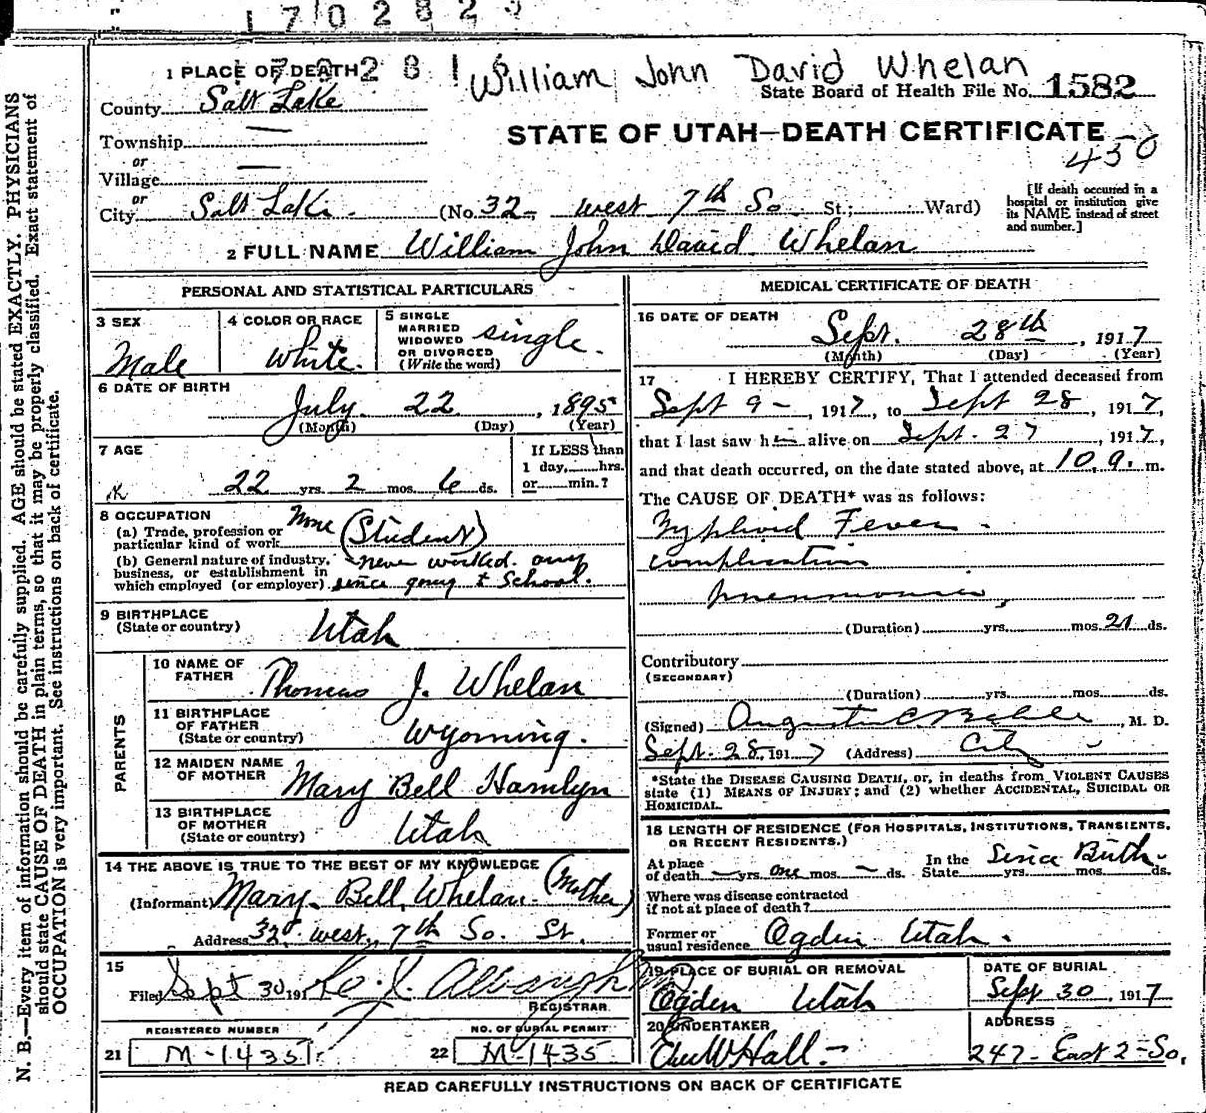 1702823
170281
William John David Whelan
1 PLACE OF DEATH
State Board of Health File No. 1582
County Salt Lake
STATE OF UTAH—DEATH CERTIFICATE
450
Township —
or
Village —
or
City Salt Lake. (No. 32 west 7th So. St.; Ward)
[If death occurred in a hospital or institution give its NAME instead of street and number.]
2 FULL NAME William John David Whelan
PERSONAL AND STATISTICAL PARTICULARS
3 SEX Male
4 COLOR OR RACE White.
5 SINGLE MARRIED WIDOWED OR DIVORCED (Write the word) single.
6 DATE OF BIRTH
July 22, 1895
(Month) (Day) (Year)
7 AGE
22 yrs. 2 mos. 6 ds.
If LESS than 1 day, hrs. or min.?
8 OCCUPATION
(a) Trade, profession or particular kind of work None (Student)
(b) General nature of industry, business, or establishment in which employed (or employer) never worked any since going to School.
9 BIRTHPLACE
(State or country) Utah
PARENTS
10 NAME OF FATHER Thomas J. Whelan
11 BIRTHPLACE OF FATHER (State or country) Wyoming.
12 MAIDEN NAME OF MOTHER Mary Bell Hamlyn
13 BIRTHPLACE OF MOTHER (State or country) Utah
14 THE ABOVE IS TRUE TO THE BEST OF MY KNOWLEDGE
(Informant) Mary Bell Whelan (Mother)
Address 32 west 7th So. St.
15
Filed Sept 30 191
REGISTRAR
REGISTERED NUMBER
21 M-1435
NO. OF BURIAL PERMIT
22 M-1435
MEDICAL CERTIFICATE OF DEATH
16 DATE OF DEATH
Sept. 28th, 1917
(Month) (Day) (Year)
17 I HEREBY CERTIFY, That I attended deceased from
Sept 9 -, 1917, to Sept 28, 1917,
that I last saw him alive on Sept. 27, 1917,
and that death occurred, on the date stated above, at 10 a. m.
The CAUSE OF DEATH* was as follows:
Typhoid Fever -
complication
pneumonia,
(Duration) yrs. mos. 21 ds.
Contributory
(SECONDARY)
(Duration) yrs. mos. ds.
(Signed) M. D.
Sept. 28, 1917 (Address) City
*State the DISEASE CAUSING DEATH, or, in deaths from VIOLENT CAUSES
state (1) MEANS OF INJURY; and (2) whether ACCIDENTAL, SUICIDAL OR
HOMICIDAL.
18 LENGTH OF RESIDENCE (FOR HOSPITALS, INSTITUTIONS, TRANSIENTS,
OR RECENT RESIDENTS.)
At place of death — yrs. one mos. — ds. In the State Since Birth yrs. mos. ds.
Where was disease contracted
if not at place of death?
Former or usual residence Ogden Utah.
19 PLACE OF BURIAL OR REMOVAL
Ogden Utah
DATE OF BURIAL
Sept 30, 1917
20 UNDERTAKER
Hall
ADDRESS
247 East 2-So.
READ CAREFULLY INSTRUCTIONS ON BACK OF CERTIFICATE
N. B.—Every item of information should be carefully supplied. AGE should be stated EXACTLY. PHYSICIANS
should state CAUSE OF DEATH in plain terms, so that it may be properly classified. Exact statement of
OCCUPATION is very important. See instructions on back of certificate.